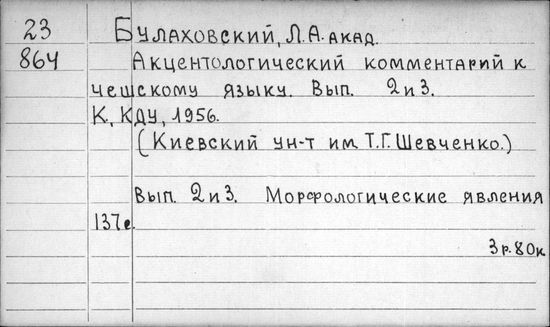 23 Булаховский, Л.А. акад.
864 Акцентологический комментарий к
чешскому языку. Вып. 2 и 3.
К., КДУ, 1956.
(Киевский ун-т им. Т.Г. Шевченко.)
Вып. 2 и 3. Морфологические явления
137с.
3 р. 80 к